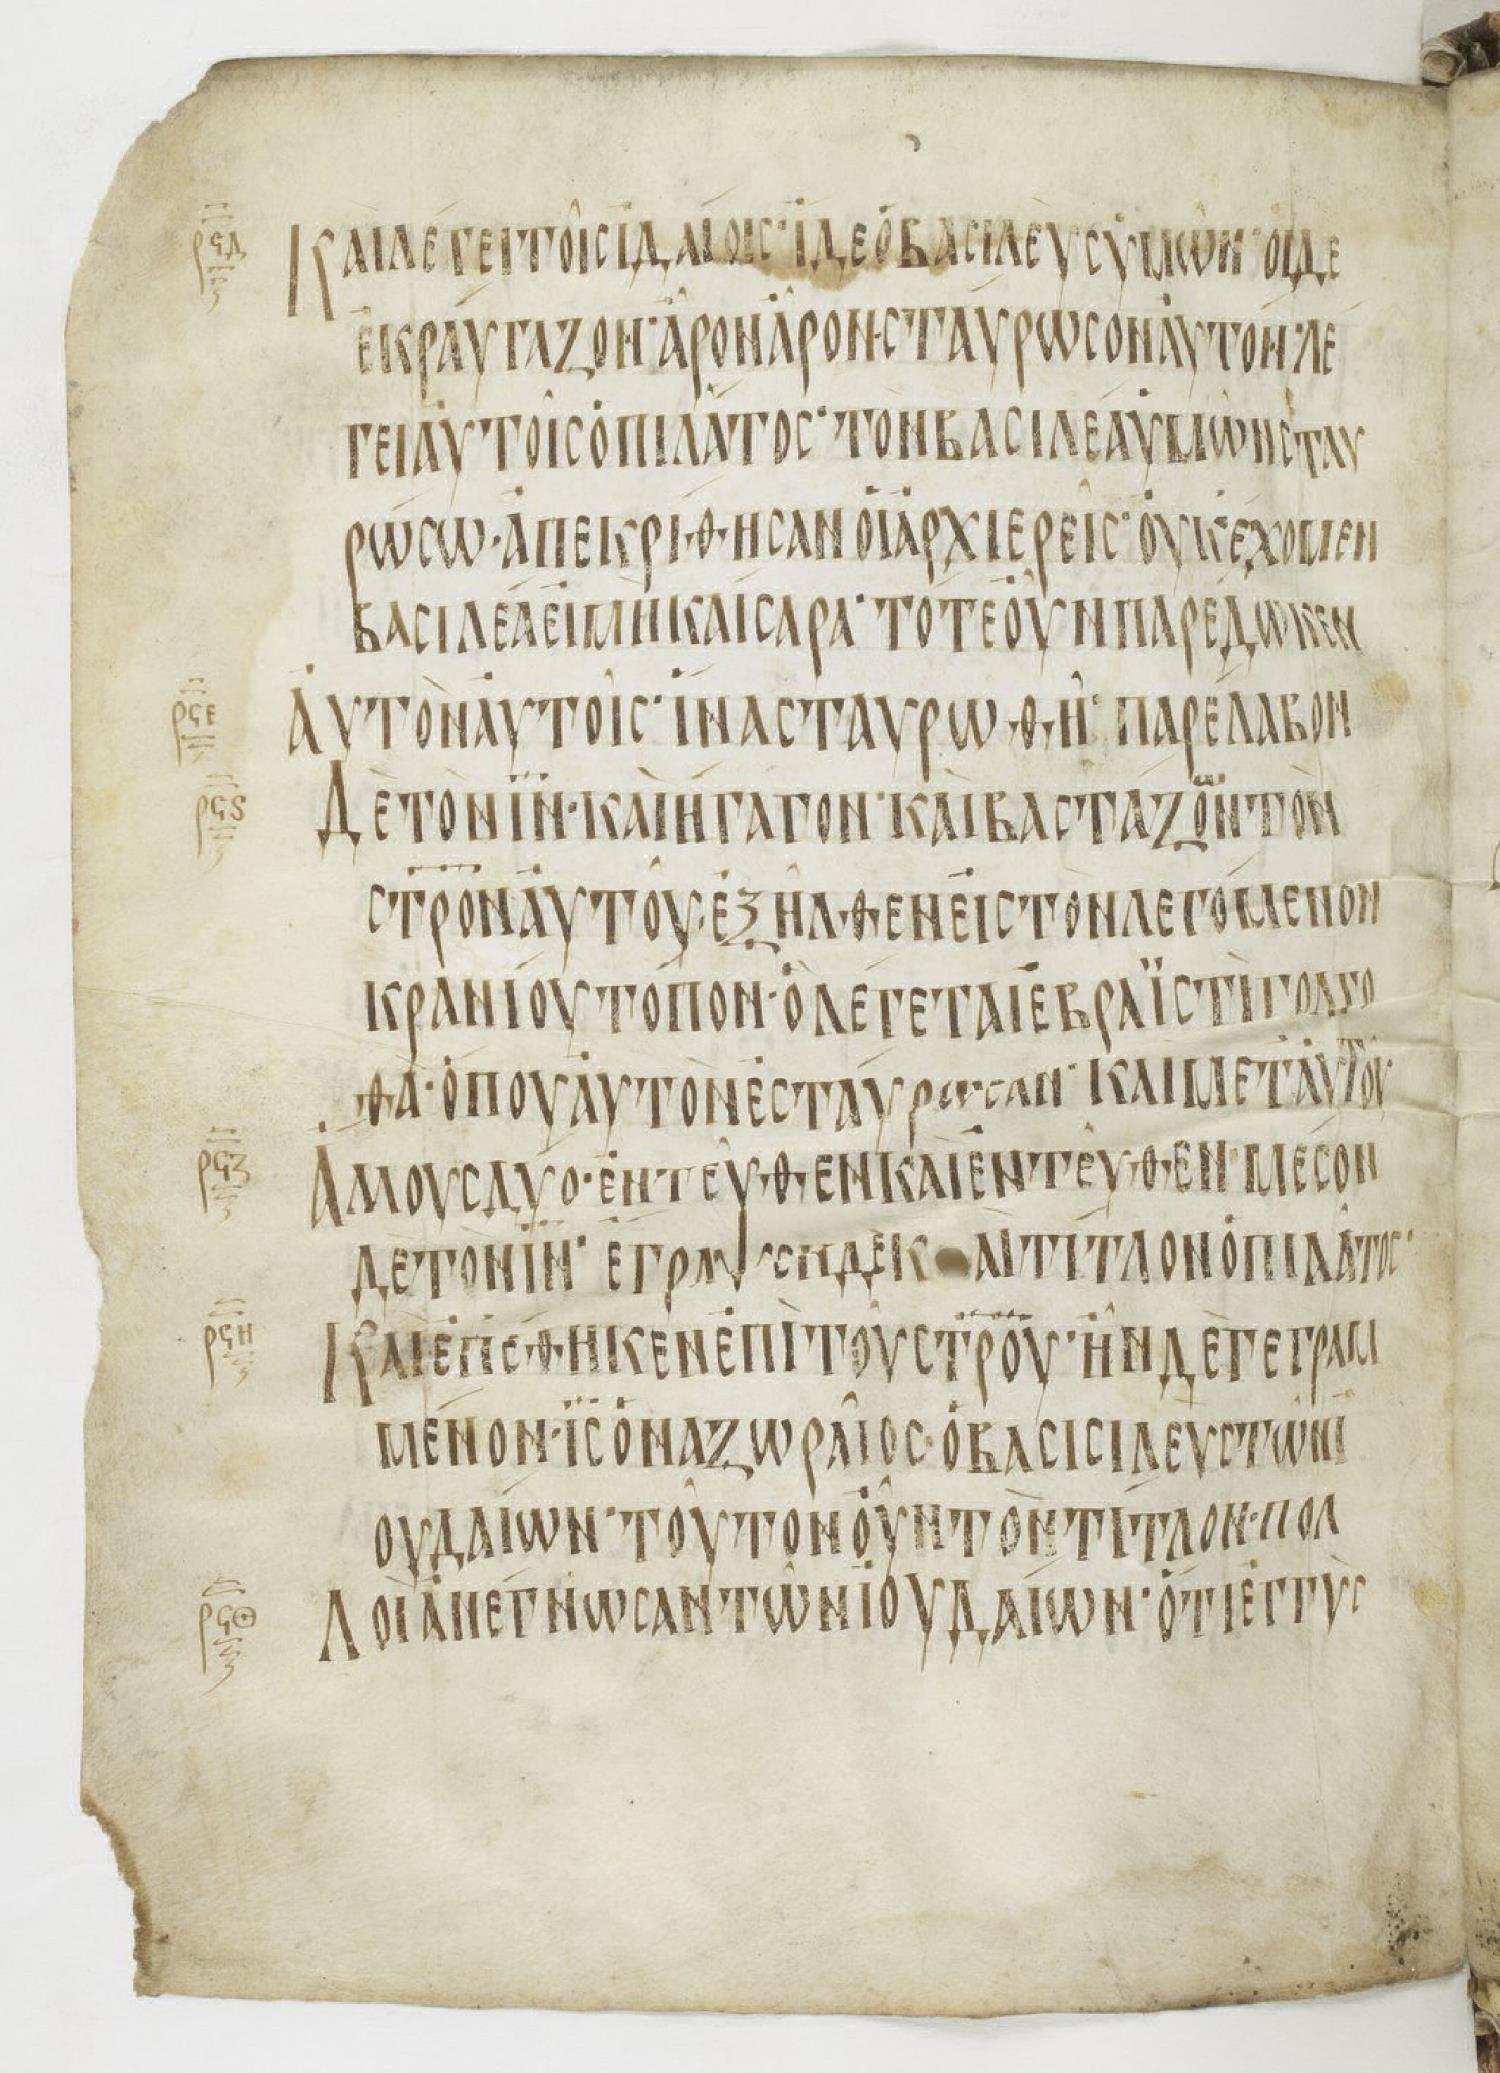 ρϟδ
Καὶ λέγει τοῖς ἰδαίοις· ἴδε ὁ βασιλεὺς ὑμῶν· οἱ δὲ
ἐκραύγαζον· ἆρον ἆρον· σταύρωσον αὐτόν· λέ
γει αὐτοῖς ὁ πιλᾶτος· τὸν βασιλέα ὑμῶν σταυ
ρώσω· ἀπεκρίθησαν οἱ ἀρχιερεῖς· οὐκ ἔχομεν
βασιλέα εἰ μὴ καίσαρα· τότε οὖν παρέδωκεν
ρϟε
Αὐτὸν αὐτοῖς· ἵνα σταυρωθῆ· παρέλαβον
ρϟϛ
Δὲ τὸν ἰν· καὶ ἤγαγον· καὶ βαστάζων τὸν
στρον αὐτοῦ· ἐξῆλθεν εἰς τὸν λεγόμενον
κρανίου τόπον· ὃ λέγεται ἑβραϊστὶ γολγο
θᾶ· ὅπου αὐτὸν ἐσταύρωσαν· καὶ μετ' αὐτοῦ·
ρϟζ
Ἄλλους δύο· ἐντεῦθεν καὶ ἐντεῦθεν· μέσον
δὲ τὸν ἰν· ἔγραψεν δὲ κ αὶ τίτλον ὁ πιλᾶτος·
ρϟη
Καὶ ἔθηκεν ἐπὶ τοῦ στρου· ἦν δὲ γεγραμ
μένον· ἰς ὁ ναζωραῖος· ὁ βασισιλεὺς τῶν ἰ
ουδαίων· τοῦτον οὖν τὸν τίτλον· πολ
ρϟθ
Λοὶ ἀνέγνωσαν τῶν ἰουδαίων· ὅτι ἐγγὺς